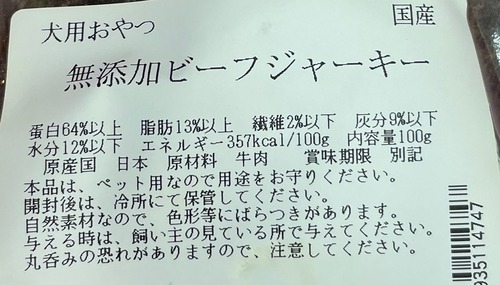 犬用おやつ 国産
無添加ビーフジャーキー
蛋白64%以上 脂肪13%以上 繊維2%以下 灰分9%以下
水分12%以下 エネルギー357kcal/100g 内容量100g
原産国 日本 原材料 牛肉 賞味期限 別記
本品は、ペット用なので用途をお守りください。
開封後は、冷所にて保管してください。
自然素材なので、色形等にばらつきがあります。
与える時は、飼い主の見ている所で与えてください。
丸呑みの恐れがありますので、注意してください。
935114747